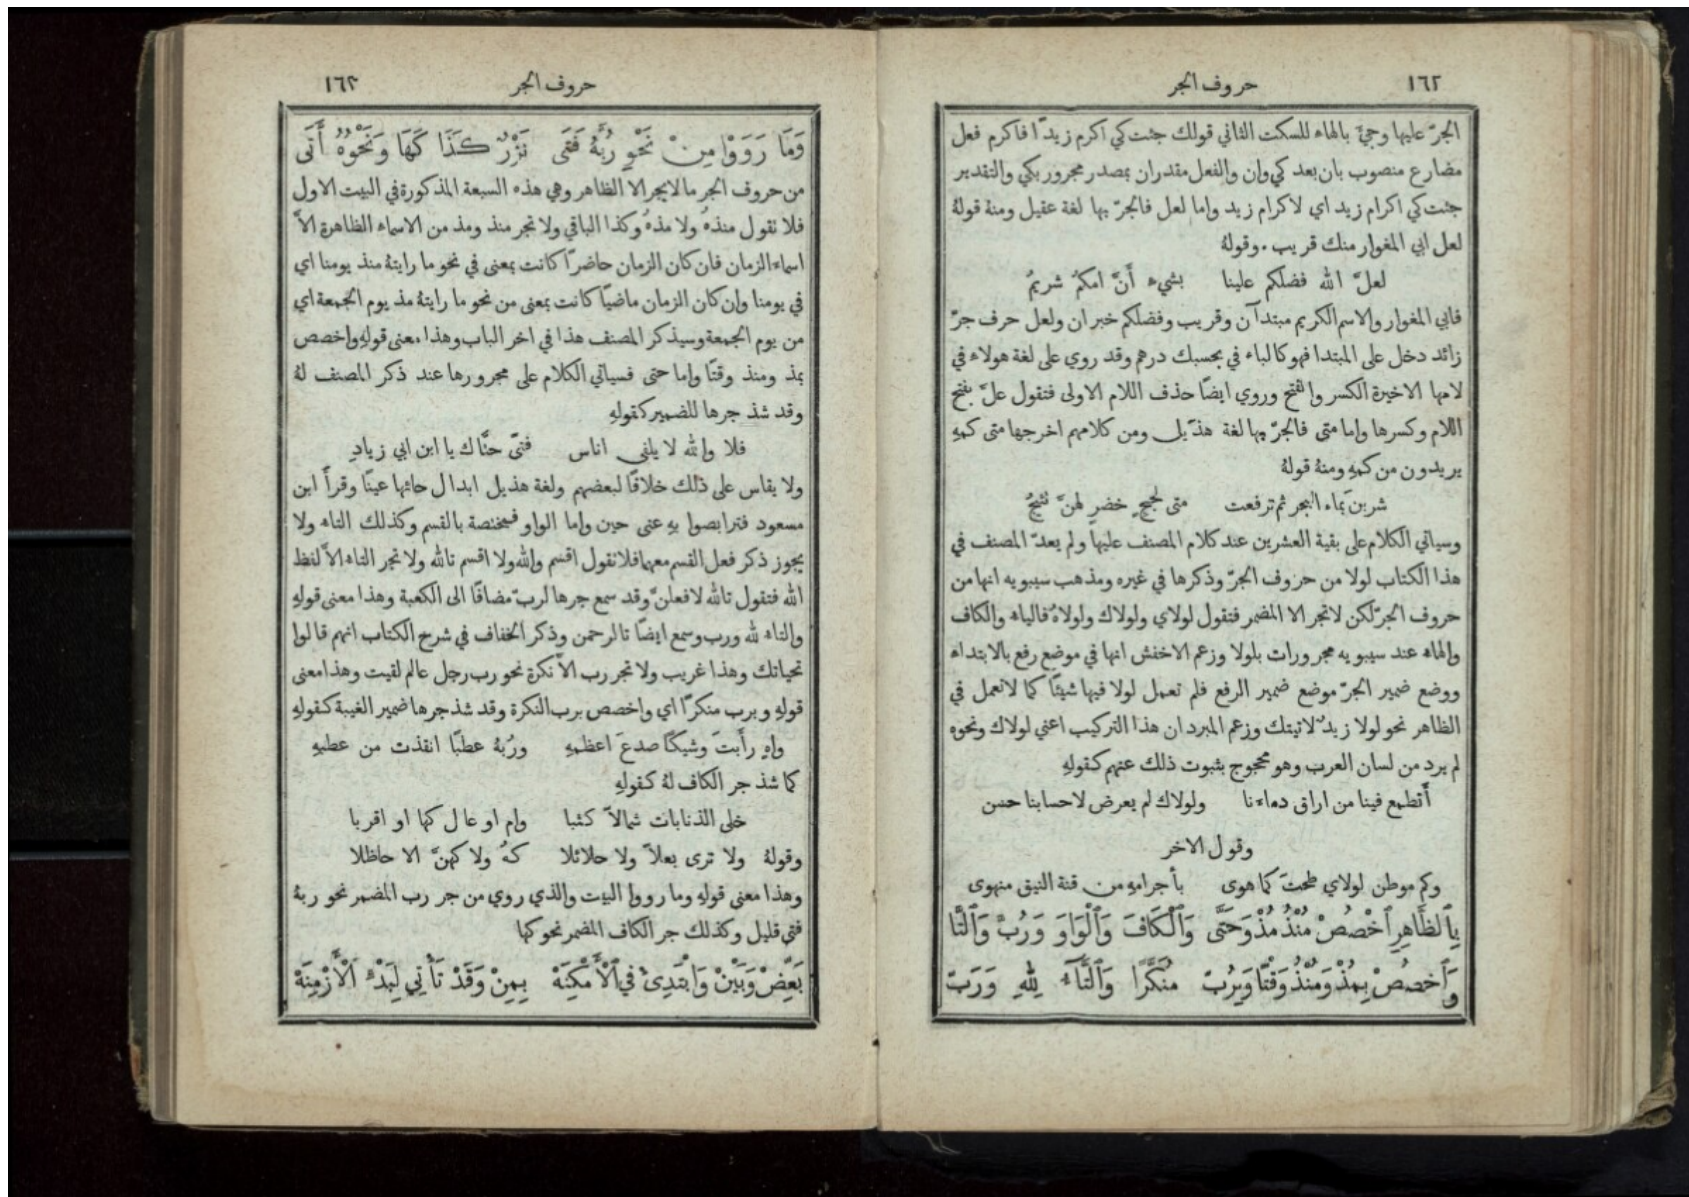 ١٦٢
حروف الجر
الجرّ عليها وجيَّ بالهاء للسكت الثاني قولك جئت كي اكرم زيدًا فاكرم فعل
مضارع منصوب بان بعد كي وان والفعل مقدران بمصدر مجرور بكي والتقدير
جئت كي اكرام زيد اي لاكرام زيد واما لعل فالجرّ بها لغة عقيل ومنهُ قولهُ
لعل ابي المغوار منك قريب . وقولهُ
لعلَّ الله فضلكم علينا بشيء أَنَّ امكمُ شريمُ
فابي المغوار والاسم الكريم مبتدآن وقريب وفضلكم خبران ولعل حرف جرّ
زائد دخل على المبتدا فهو كالباء في بحسبك درهم وقد روي على لغة هولاء في
لامها الاخيرة الكسر والفتح وروي ايضًا حذف اللام الاولى فتقول علَّ بفتح
اللام وكسرها واما متى فالجرّ بها لغة هذيل ومن كلامهم اخرجها متى كمهِ
يريدون من كمهِ ومنهُ قولهُ
شربن بماء البحر ثم ترفعت متى لججٍ خضرٍ لهنَّ نئيجُ
وسياتي الكلام على بقية العشرين عند كلام المصنف عليها ولم يعدّ المصنف في
هذا الكتاب لولا من حروف الجرّ وذكرها في غيره ومذهب سيبويه انها من
حروف الجرّ لكن لا تجر الا المضمر فتقول لولاي ولولاك ولولاهُ فالياء والكاف
والهاء عند سيبويه مجرورات بلولا وزعم الاخفش انها في موضع رفع بالابتداء
ووضع ضمير الجرّ موضع ضمير الرفع فلم تعمل لولا فيها شيئًا كما لا تعمل في
الظاهر نحو لولا زيدٌ لاتيتك وزعم المبرد ان هذا التركيب اعني لولاك ونحوه
لم يرد من لسان العرب وهو محجوج بثبوت ذلك عنهم كقولهِ
أتطمع فينا من اراق دماءنا ولولاك لم يعرض لاحسابنا حسن
وقول الاخر
وكم موطن لولاي طحتَ كما هوى بأجرامهِ من قنة النيق منهوى
بِٱلظَّاهِرِ ٱخْصُصْ مُنْذُ مُذْ وَحَتَّى وَٱلْكَافَ وَٱلْوَاوَ وَرُبَّ وَٱلتَّا
وَٱخصُصْ بِمُذْ وَمُنْذُ وَقْتًا وَبِرُبّ مُنَكَّرًا وَٱلتَّاءُ لِلهِ وَرَبّ
١٦٣
حروف الجر
وَمَا رَوَوْا مِنْ نَحْوِ رُبَّهُ فَتَى نَزْرٌ كَذَا كَهَا وَنَحْوُهُ أَتَى
من حروف الجر ما لا يجر الا الظاهر وهي هذه السبعة المذكورة في البيت الاول
فلا تقول منذهُ ولا مذهُ وكذا الباقي ولا تجر منذ ومذ من الاسماء الظاهرة الاَّ
اسماء الزمان فان كان الزمان حاضرًا كانت بمعنى في نحو ما رايتهُ منذ يومنا اي
في يومنا وان كان الزمان ماضيًا كانت بمعنى من نحو ما رايتهُ مذ يوم الجمعة اي
من يوم الجمعة وسيذكر المصنف هذا في اخر الباب وهذا معنى قولهِ واخصص
بمذ ومنذ وقتًا واما حتى فسياتي الكلام على مجرورها عند ذكر المصنف لهُ
وقد شذ جرها للضمير كقولهِ
فلا والله لا يلفى اناس فتىً حتَّاك يا ابن ابي زيادِ
ولا يقاس على ذلك خلافًا لبعضهم ولغة هذيل ابدال حائها عينًا وقرأ ابن
مسعود فتربصوا بهِ عتى حين واما الواو فمختصة بالقسم وكذلك التاء ولا
يجوز ذكر فعل القسم معهما فلا تقول اقسم والله ولا اقسم تالله ولا تجر التاء الاَّ لفظ
الله فتقول تالله لافعلنَّ وقد سمع جرها لربّ مضافًا الى الكعبة وهذا معنى قولهِ
والتاء لله ورب وسمع ايضًا تالرحمن وذكر الخفاف في شرح الكتاب انهم قالوا
تحياتك وهذا غريب ولا تجر رب الاَّ نكرة نحو رب رجل عالم لقيت وهذا معنى
قولهِ وبرب منكرًا اي واخصص برب النكرة وقد شذ جرها ضمير الغيبة كقولهِ
واهٍ رأَبتَ وشيكًا صدعَ اعظمهِ ورُبهُ عطبًا انقذت من عطبهِ
كما شذ جر الكاف لهُ كقولهِ
خلى الذنابات شمالاً كثبا وام اوعال كها او اقربا
وقولهُ ولا ترى بعلاً ولا حلائلا كهُ ولا كهنَّ الا حاظلا
وهذا معنى قولهِ وما رووا البيت والذي روي من جر رب المضمر نحو ربهُ
فتى قليل وكذلك جر الكاف المضمر نحو كها
بَعِّضْ وَبَيِّنْ وَابْتَدِئْ فِي ٱلْأَمْكِنَهْ بِمِنْ وَقَدْ تَأْتِي لِبَدْءِ ٱلْأَزْمِنَهْ